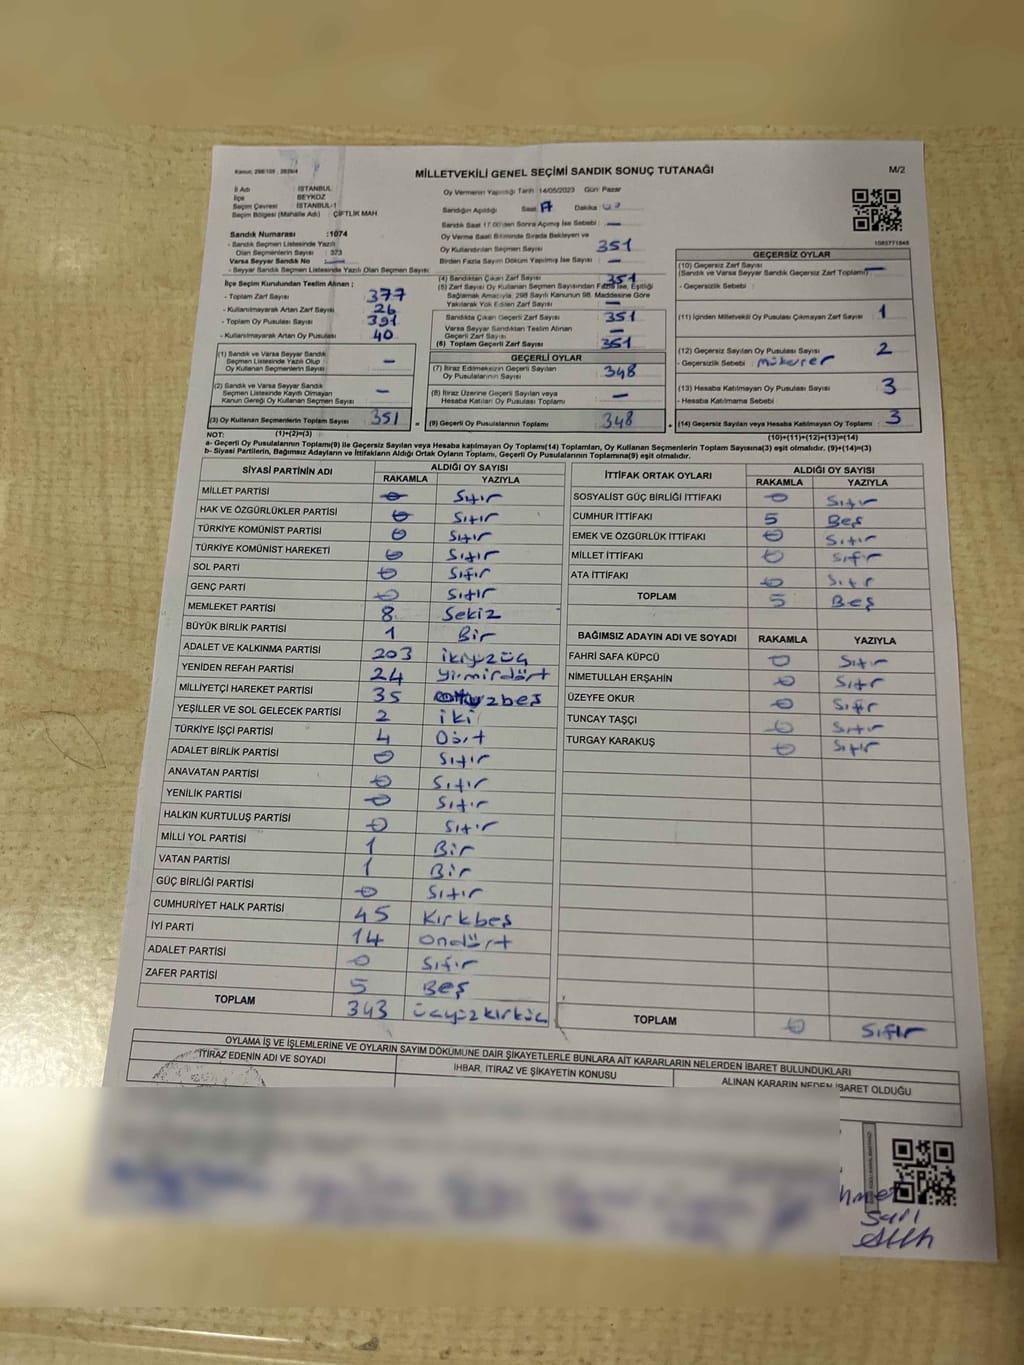 Kanun: 298/105 , 2839/4
MİLLETVEKİLİ GENEL SEÇİMİ SANDIK SONUÇ TUTANAĞI
M/2
İl Adı : İSTANBUL
İlçe : BEYKOZ
Seçim Çevresi : İSTANBUL-1
Seçim Bölgesi (Mahalle Adı) : ÇİFTLİK MAH
Sandık Numarası :1074
- Sandık Seçmen Listesinde Yazılı
Olan Seçmenlerin Sayısı : 373
Varsa Seyyar Sandık No : —
- Seyyar Sandık Seçmen Listesinde Yazılı Olan Seçmen Sayısı:
İlçe Seçim Kurulundan Teslim Alınan ;
- Toplam Zarf Sayısı : 377
- Kullanılmayarak Artan Zarf Sayısı : 26
- Toplam Oy Pusulası Sayısı : 391
- Kullanılmayarak Artan Oy Pusulası : 40
(1) Sandık ve Varsa Seyyar Sandık
Seçmen Listesinde Yazılı Olup
Oy Kullanan Seçmenlerin Sayısı : —
(2) Sandık ve Varsa Seyyar Sandık
Seçmen Listesinde Kayıtlı Olmayan
Kanun Gereği Oy Kullanan Seçmen Sayısı : —
(3) Oy Kullanan Seçmenlerin Toplam Sayısı : 351
(1)+(2)=(3)
Oy Vermenin Yapıldığı Tarih :14/05/2023 Gün: Pazar
Sandığın Açıldığı Saat : 17 Dakika :
Sandık Saat 17.00'den Sonra Açılmış İse Sebebi : —
Oy Verme Saati Bitiminde Sırada Bekleyen ve
Oy Kullandırılan Seçmen Sayısı : 351
Birden Fazla Sayım Döküm Yapılmış İse Sayısı : —
(4) Sandıktan Çıkan Zarf Sayısı : 351
(5) Zarf Sayısı Oy Kullanan Seçmen Sayısından Fazla İse, Eşitliği
Sağlamak Amacıyla, 298 Sayılı Kanunun 98. Maddesine Göre
Yakılarak Yok Edilen Zarf Sayısı :
Sandıkta Çıkan Geçerli Zarf Sayısı : 351
Varsa Seyyar Sandıktan Teslim Alınan
Geçerli Zarf Sayısı : —
(6) Toplam Geçerli Zarf Sayısı : 351
GEÇERLİ OYLAR
(7) İtiraz Edilmeksizin Geçerli Sayılan
Oy Pusulalarının Sayısı : 348
(8) İtiraz Üzerine Geçerli Sayılan veya
Hesaba Katılan Oy Pusulası Toplamı : —
(9) Geçerli Oy Pusulalarının Toplamı : 348
GEÇERSİZ OYLAR
(10) Geçersiz Zarf Sayısı : —
(Sandık ve Varsa Seyyar Sandık Geçersiz Zarf Toplamı)
- Geçersizlik Sebebi :
(11) İçinden Milletvekili Oy Pusulası Çıkmayan Zarf Sayısı : 1
(12) Geçersiz Sayılan Oy Pusulası Sayısı : 2
- Geçersizlik Sebebi : mükerrer
(13) Hesaba Katılmayan Oy Pusulası Sayısı : 3
- Hesaba Katılmama Sebebi :
(14) Geçersiz Sayılan veya Hesaba Katılmayan Oy Toplamı : 3
(10)+(11)+(12)+(13)=(14)
NOT:
a- Geçerli Oy Pusulalarının Toplamı(9) ile Geçersiz Sayılan veya Hesaba katılmayan Oy Toplam(14) Toplamları, Oy Kullanan Seçmenlerin Toplam Sayısına(3) eşit olmalıdır. (9)+(14)=(3)
b- Siyasi Partilerin, Bağımsız Adayların ve İttifakların Aldığı Ortak Oyların Toplamı, Geçerli Oy Pusulalarının Toplamına(9) eşit olmalıdır.
SİYASİ PARTİNİN ADI ALDIĞI OY SAYISI
RAKAMLA YAZIYLA
MİLLET PARTİSİ 0 Sıfır
HAK VE ÖZGÜRLÜKLER PARTİSİ 0 Sıfır
TÜRKİYE KOMÜNİST PARTİSİ 0 Sıfır
TÜRKİYE KOMÜNİST HAREKETİ 0 Sıfır
SOL PARTİ 0 Sıfır
GENÇ PARTİ 0 Sıfır
MEMLEKET PARTİSİ 8 Sekiz
BÜYÜK BİRLİK PARTİSİ 1 Bir
ADALET VE KALKINMA PARTİSİ 203 ikiyüzüç
YENİDEN REFAH PARTİSİ 24 yirmidört
MİLLİYETÇİ HAREKET PARTİSİ 35 otuzbeş
YEŞİLLER VE SOL GELECEK PARTİSİ 2 iki
TÜRKİYE İŞÇİ PARTİSİ 4 Dört
ADALET BİRLİK PARTİSİ 0 Sıfır
ANAVATAN PARTİSİ 0 Sıfır
YENİLİK PARTİSİ 0 Sıfır
HALKIN KURTULUŞ PARTİSİ 0 Sıfır
MİLLİ YOL PARTİSİ 1 Bir
VATAN PARTİSİ 1 Bir
GÜÇ BİRLİĞİ PARTİSİ 0 Sıfır
CUMHURİYET HALK PARTİSİ 45 Kırkbeş
İYİ PARTİ 14 Ondört
ADALET PARTİSİ 0 Sıfır
ZAFER PARTİSİ 5 Beş
TOPLAM 343 üçyüzkırküç
İTTİFAK ORTAK OYLARI ALDIĞI OY SAYISI
RAKAMLA YAZIYLA
SOSYALİST GÜÇ BİRLİĞİ İTTİFAKI 0 Sıfır
CUMHUR İTTİFAKI 5 Beş
EMEK VE ÖZGÜRLÜK İTTİFAKI 0 Sıfır
MİLLET İTTİFAKI 0 Sıfır
ATA İTTİFAKI 0 Sıfır
TOPLAM 5 Beş
BAĞIMSIZ ADAYIN ADI VE SOYADI RAKAMLA YAZIYLA
FAHRİ SAFA KÜPCÜ 0 Sıfır
NİMETULLAH ERŞAHİN 0 Sıfır
ÜZEYFE OKUR 0 Sıfır
TUNCAY TAŞÇI 0 Sıfır
TURGAY KARAKUŞ 0 Sıfır
TOPLAM 0 Sıfır
OYLAMA İŞ VE İŞLEMLERİNE VE OYLARIN SAYIM DÖKÜMÜNE DAİR ŞİKAYETLERLE BUNLARA AİT KARARLARIN NELERDEN İBARET BULUNDUKLARI
İTİRAZ EDENİN ADI VE SOYADI
İHBAR, İTİRAZ VE ŞİKAYETİN KONUSU
ALINAN KARARIN NEDEN İBARET OLDUĞU